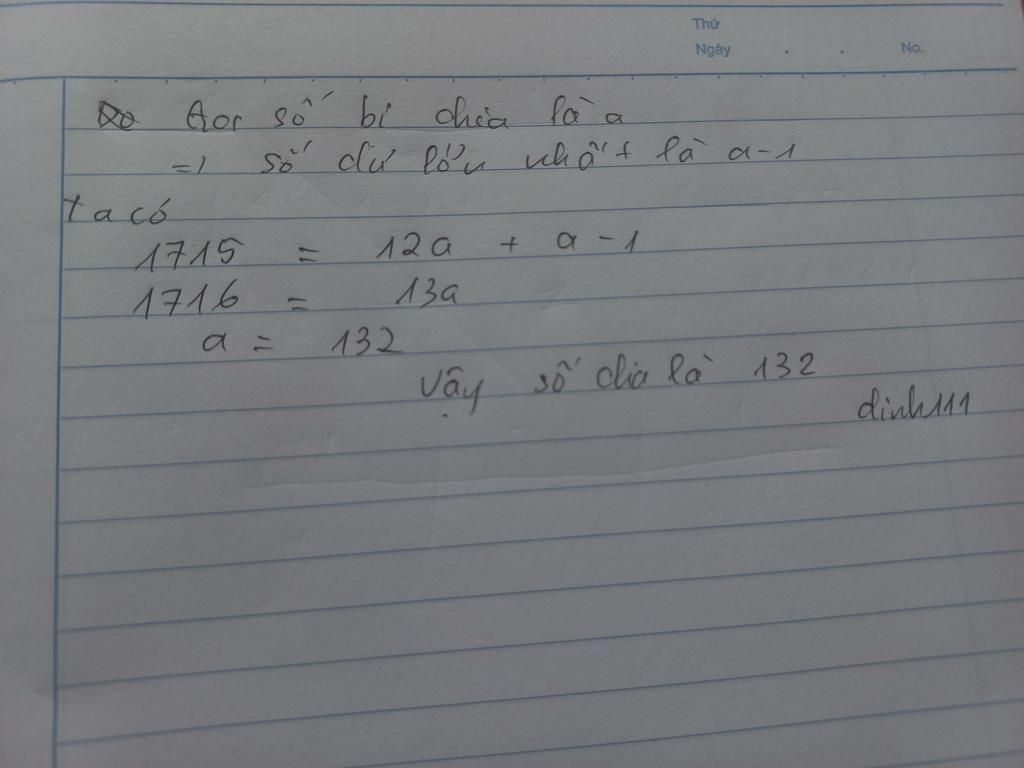 Thứ
Ngày . . No.
Gọi số bị chia là a
=) số dư lớn nhất là a-1
ta có
1715 = 12a + a - 1
1716 = 13a
a = 132
Vậy số chia là 132
dinh111